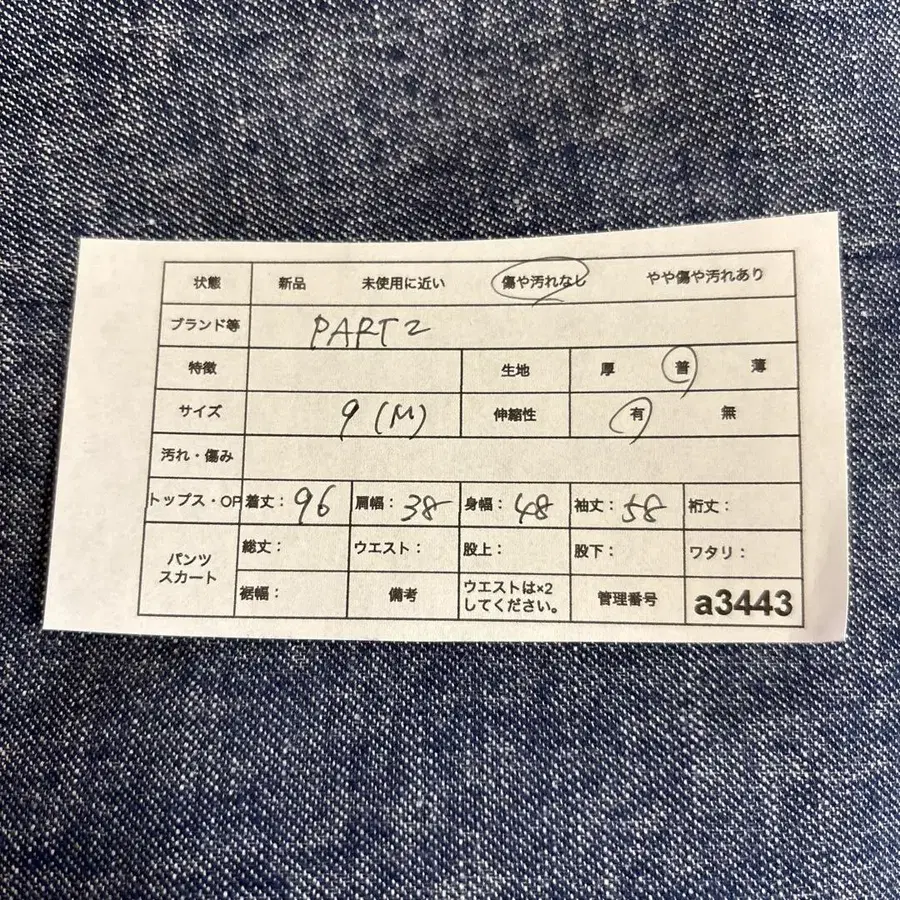 状態 新品 未使用に近い 傷や汚れなし やや傷や汚れあり
ブランド等 PART2
特徴 生地 厚 普 薄
サイズ 9 (M) 伸縮性 有 無
汚れ・傷み
トップス・OP 着丈: 96 肩幅: 38 身幅: 48 袖丈: 58 裄丈:
パンツ
スカート
総丈: ウエスト: 股上: 股下: ワタリ:
裾幅: 備考 ウエストは×2
してください。
管理番号 a3443